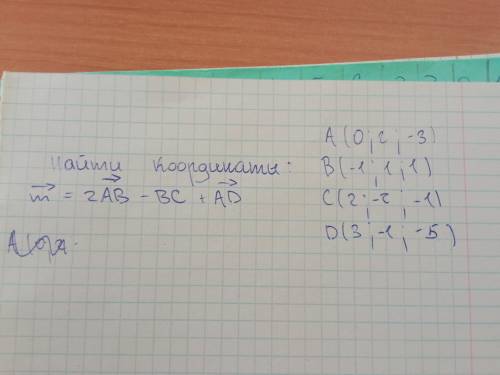 Найти координаты:
m = 2AB - BC + AD
A (0; 2; -3)
B(-1; 1; 1)
C(2; -2; -1)
D(3; -1; -5)